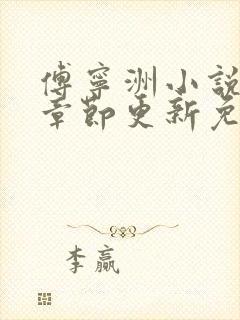 傅寧洲小說
章節更新免
李贏